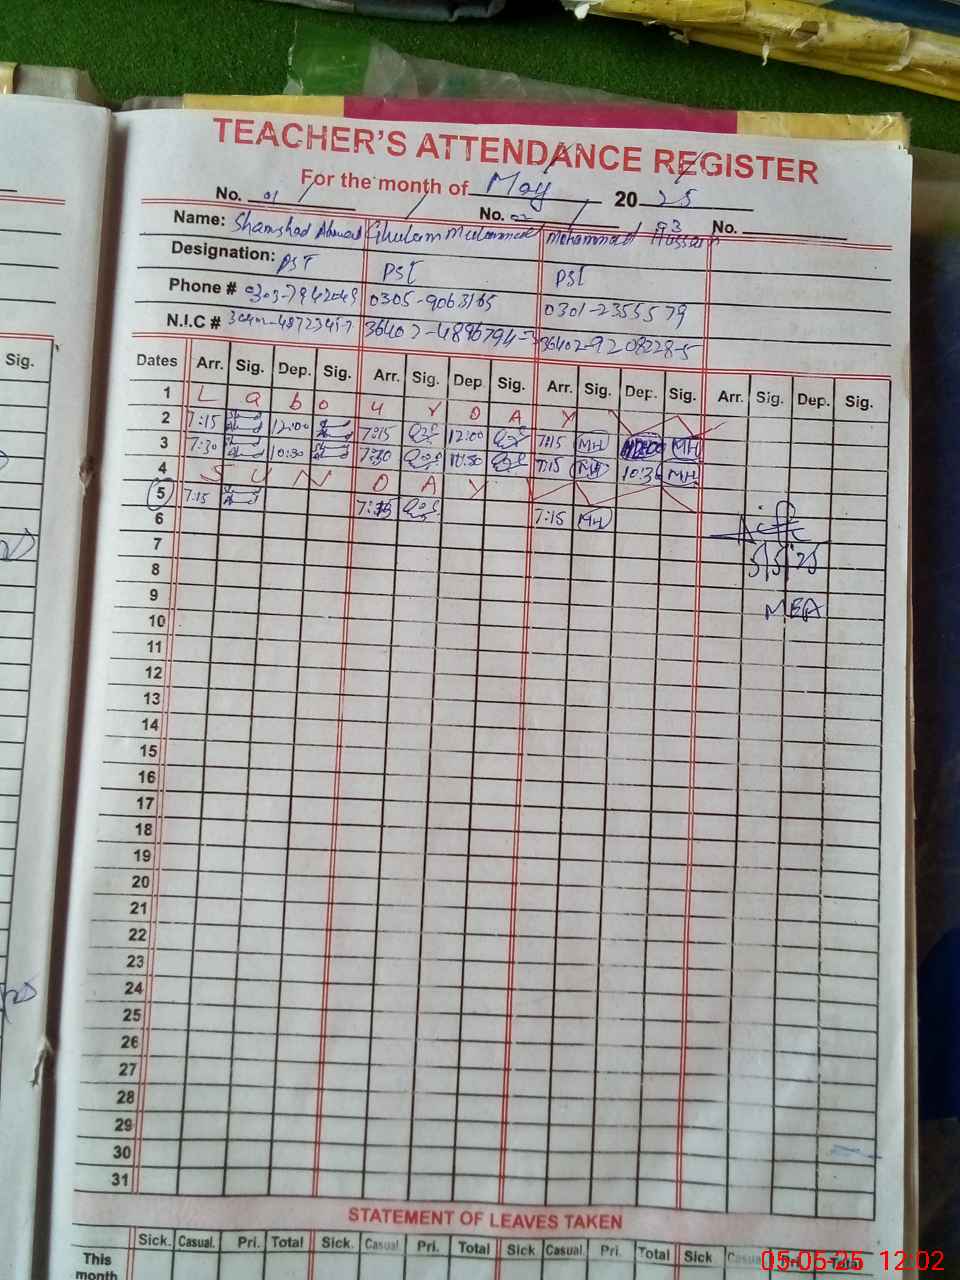 TEACHER'S ATTENDANCE REGISTER
For the month of May 2025
No. 01 No. 02 03 No.
Name: Shamshad Ahmad Ghulam Muhammad Mohammad Hussain
Designation: PST PST PST
Phone # 0305-9063165 0301-2355579
N.I.C # 36402-9208228-5
Sig.
Dates Arr. Sig. Dep. Sig. Arr. Sig. Dep. Sig. Arr. Sig. Dep. Sig. Arr. Sig. Dep. Sig.
1 L a b o u r D A Y
2 7:15 12:00 7:15 12:00 7:15 MH 12:00 MH
3 7:30 10:30 7:30 10:30 7:15 MH 10:30 MH
4 S U N D A Y
5 7:15 7:15 7:15 MH
6
7 5/5/25
8
9 MEA
10
11
12
13
14
15
16
17
18
19
20
21
22
23
24
25
26
27
28
29
30
31
STATEMENT OF LEAVES TAKEN
Sick. Casual. Pri. Total Sick. Casual Pri. Total Sick Casual. Pri. Total Sick Casual Pri. Total
This month
05-05-25 12:02